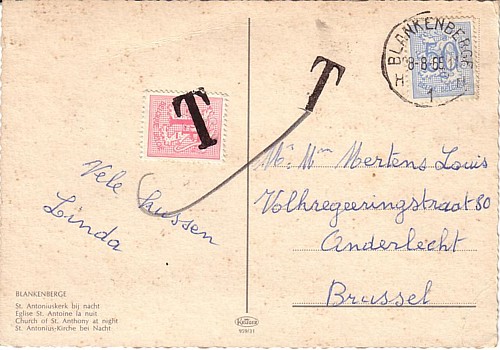 BLANKENBERGE
8-8-69
H H
1
50
T
T
Vele kussen
Linda
Mr. Mm Mertens Louis
Volhregeeringstraat 80
Anderlecht
Brussel
BLANKENBERGE
St. Antoniuskerk bij nacht
Eglise St. Antoine la nuit
Church of St. Anthony at night
St. Antonius-Kirche bei Nacht